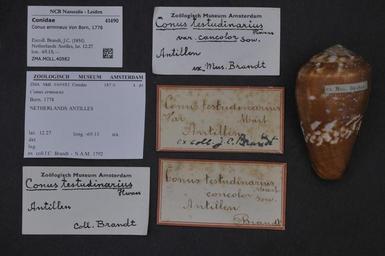 NCB Naturalis - Leiden
Conidae
41490
Conus ermineus Von Born, 1778
Excoll. Brandt, J.C. (1850)
Netherlands Antilles, lat. 12.27
lon. -69.13, ---
ZMA.MOLL.40982
ZOOLOGISCH MUSEUM AMSTERDAM
Conidae
Conus ermineus
Born, 1778
NETHERLANDS ANTILLES
lat. 12.27 long. -69.13
dat
leg
ex coll J.C. Brandt - N.A.M. 1792
Zoölogisch Museum Amsterdam
Conus testudinarius
Antillen
Coll. Brandt
Zoölogisch Museum Amsterdam
Conus testudinarius
var. concolor Sow.
Antillen
ex Mus. Brandt
Conus testudinarius
Var. Mart
Antillen
ex coll. J. C. Brandt
Conus testudinarius
Mart
concolor Sow.
Antillen
Brandt